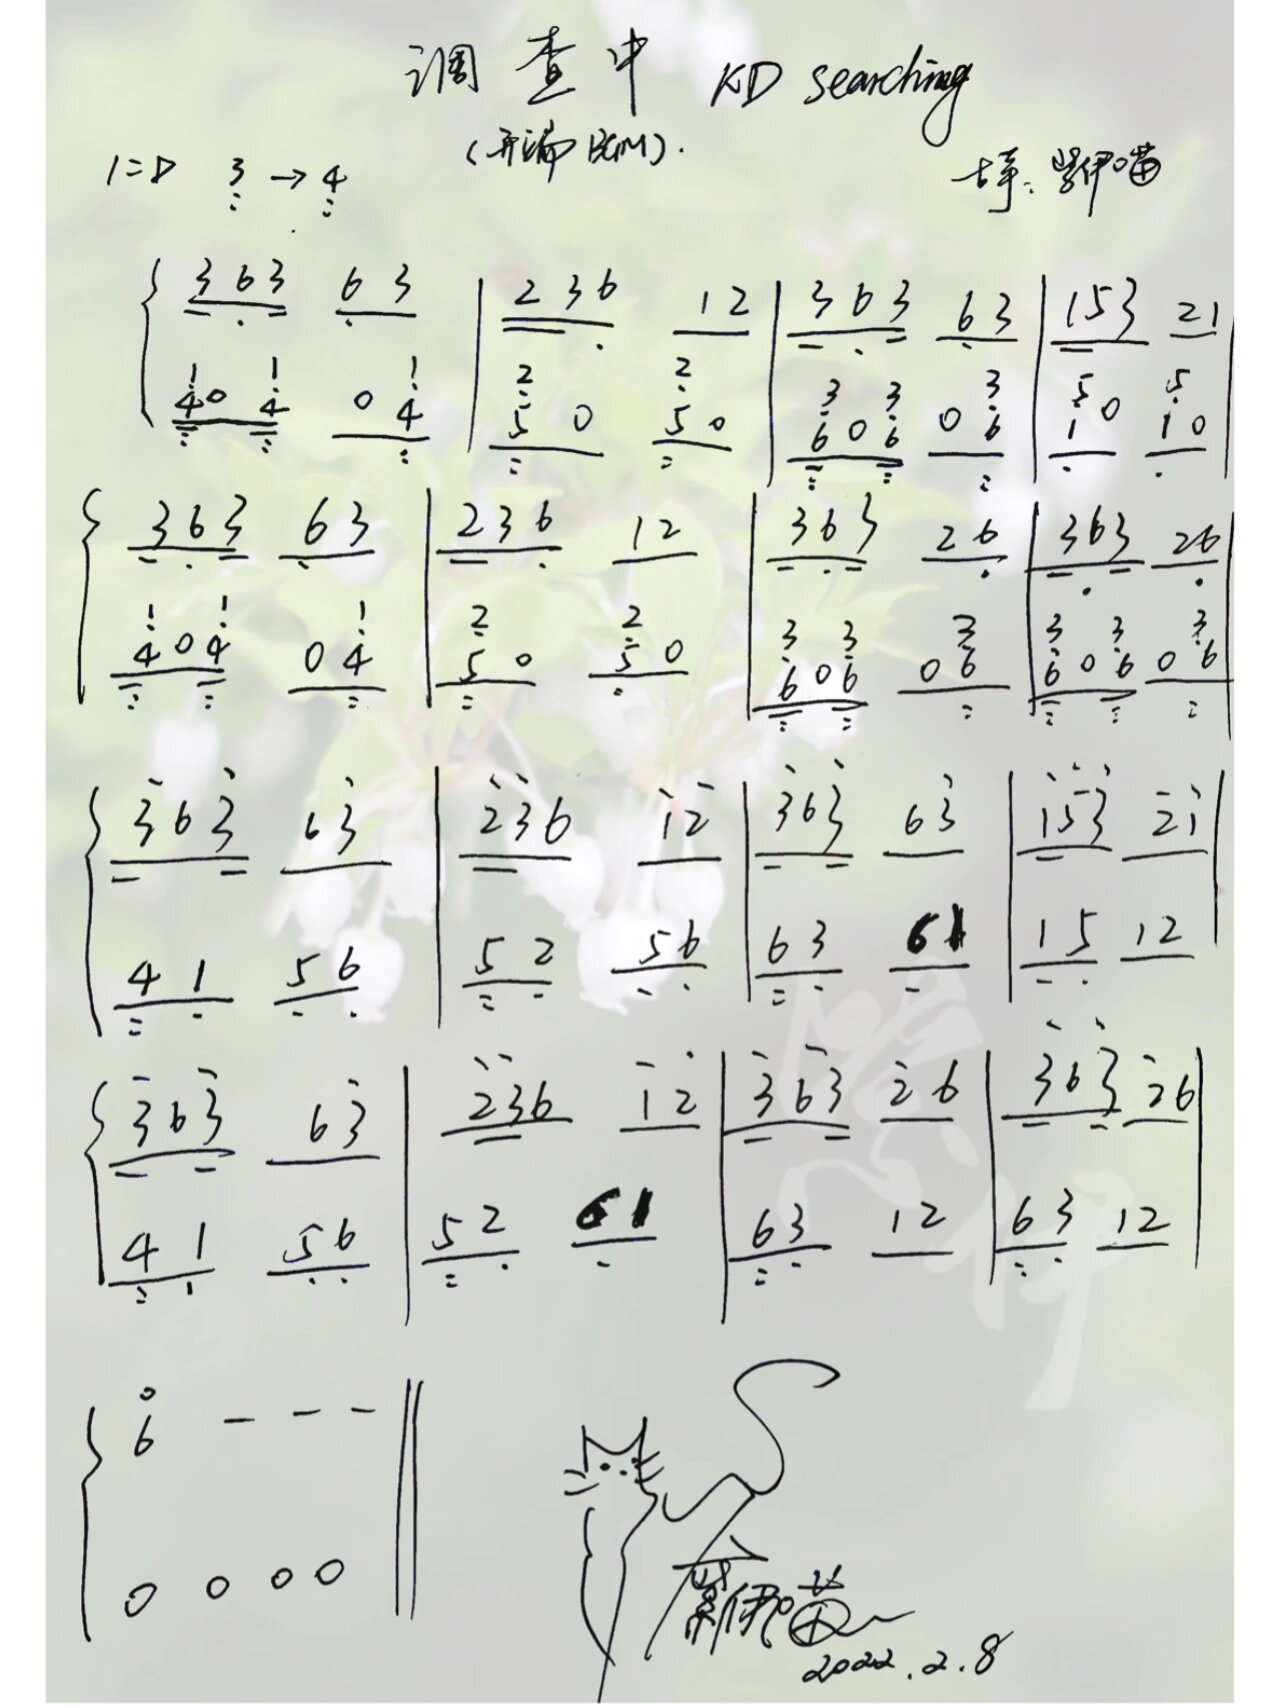 调查中 KD searching
(开端BGM).
1=D 3→4
3 6 3 6 3 | 2 3 6 1 2 | 3 6 3 6 3 | 1 5 3 2 1 |
1 1 1 2 2 3 3 3 5 5
4 0 4 0 4 | 5 0 5 0 | 6 0 6 0 6 | 1 0 1 0 |
3 6 3 6 3 | 2 3 6 1 2 | 3 6 3 2 6 | 3 6 3 2 6 |
1 1 1 2 2 3 3 3 3 3 3
4 0 4 0 4 | 5 0 5 0 | 6 0 6 0 6 | 6 0 6 0 6 |
3 6 3 6 3 | 2 3 6 1 2 | 3 6 3 6 3 | 1 5 3 2 1 |
4 1 5 6 | 5 2 5 6 | 6 3 6 1 | 1 5 1 2 |
3 6 3 6 3 | 2 3 6 1 2 | 3 6 3 2 6 | 3 6 3 2 6 |
4 1 5 6 | 5 2 6 1 | 6 3 1 2 | 6 3 1 2 |
6 – – – ||
0 0 0 0
2022.2.8